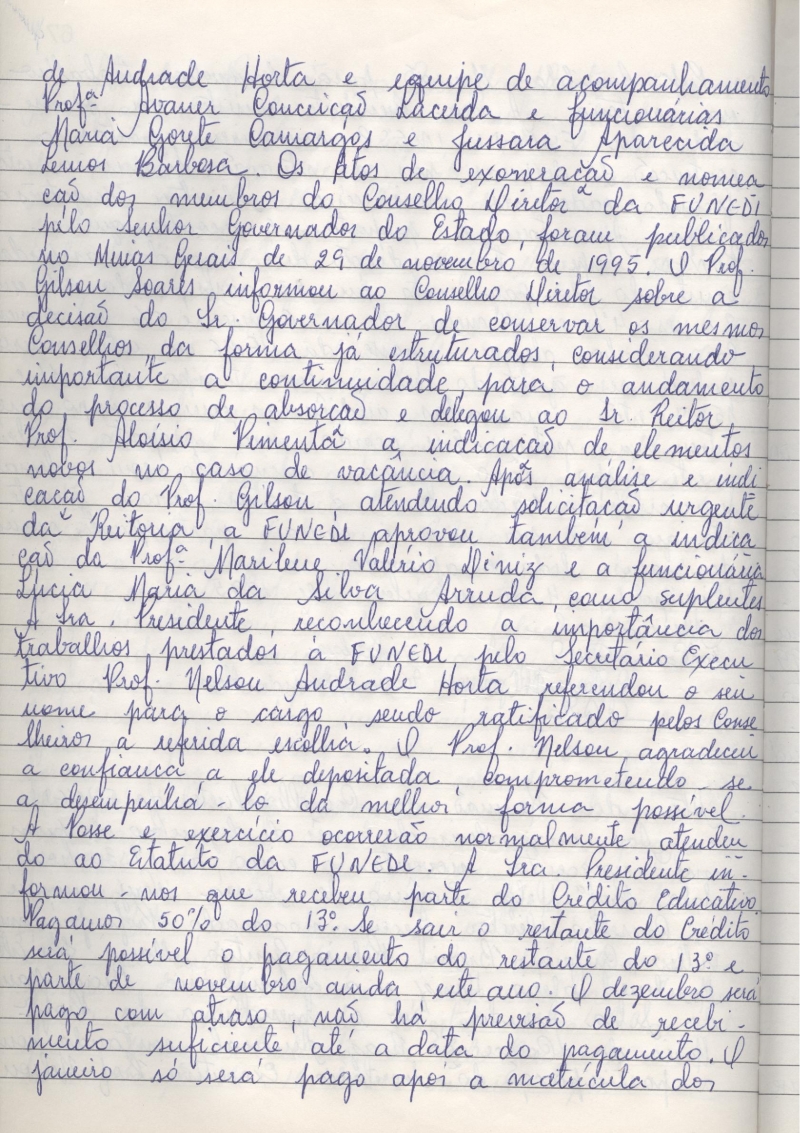 de Andrade Horta e equipe de acompanhamento
Profª Avaner Conceição Lacerda e funcionárias
Maria Gorete Camargos e Jussara Aparecida
Lemos Barbosa. Os Atos de exoneração e nomea
ção dos membros do Conselho Diretor da FUNEDI
pelo Senhor Governador do Estado, foram publicados
no Minas Gerais de 29 de novembro de 1995. O Prof.
Gilson Soares informou ao Conselho Diretor sobre a
decisão do Sr. Governador de conservar os mesmos
Conselhos da forma já estruturados, considerando
importante a continuidade, para o andamento
do processo de absorção e delegou ao Sr. Reitor,
Prof. Aloísio Pimenta a indicação de elementos
novos no caso de vacância. Após análise e indi
cação do Prof. Gilson, atendendo solicitação urgente
da Reitoria, a FUNEDI aprovou também a indica
ção da Profª Marilene Valério Diniz e a funcionária
Lúcia Maria da Silva Arruda, como suplentes
A Sra. Presidente, reconhecendo a importância dos
trabalhos prestados à FUNEDI pelo Secretário Execu
tivo Prof. Nelson Andrade Horta referendou o seu
nome para o cargo, sendo ratificado pelos Conse
lheiros a referida escolha. O Prof. Nelson, agradeceu
a confiança a ele depositada, comprometendo-se
a desempenhá-lo da melhor forma possível.
A Posse e exercício ocorrerão normalmente, atenden
do ao Estatuto da FUNEDI. A Sra. Presidente in-
formou-nos que recebeu parte do Crédito Educativo.
Pagamos 50% do 13º. Se sair o restante do Crédito
será possível o pagamento do restante do 13º e
parte de novembro ainda este ano. O dezembro será
pago com atraso, não há previsão de recebi-
mento suficiente até a data do pagamento. O
janeiro só será pago após a matrícula dos